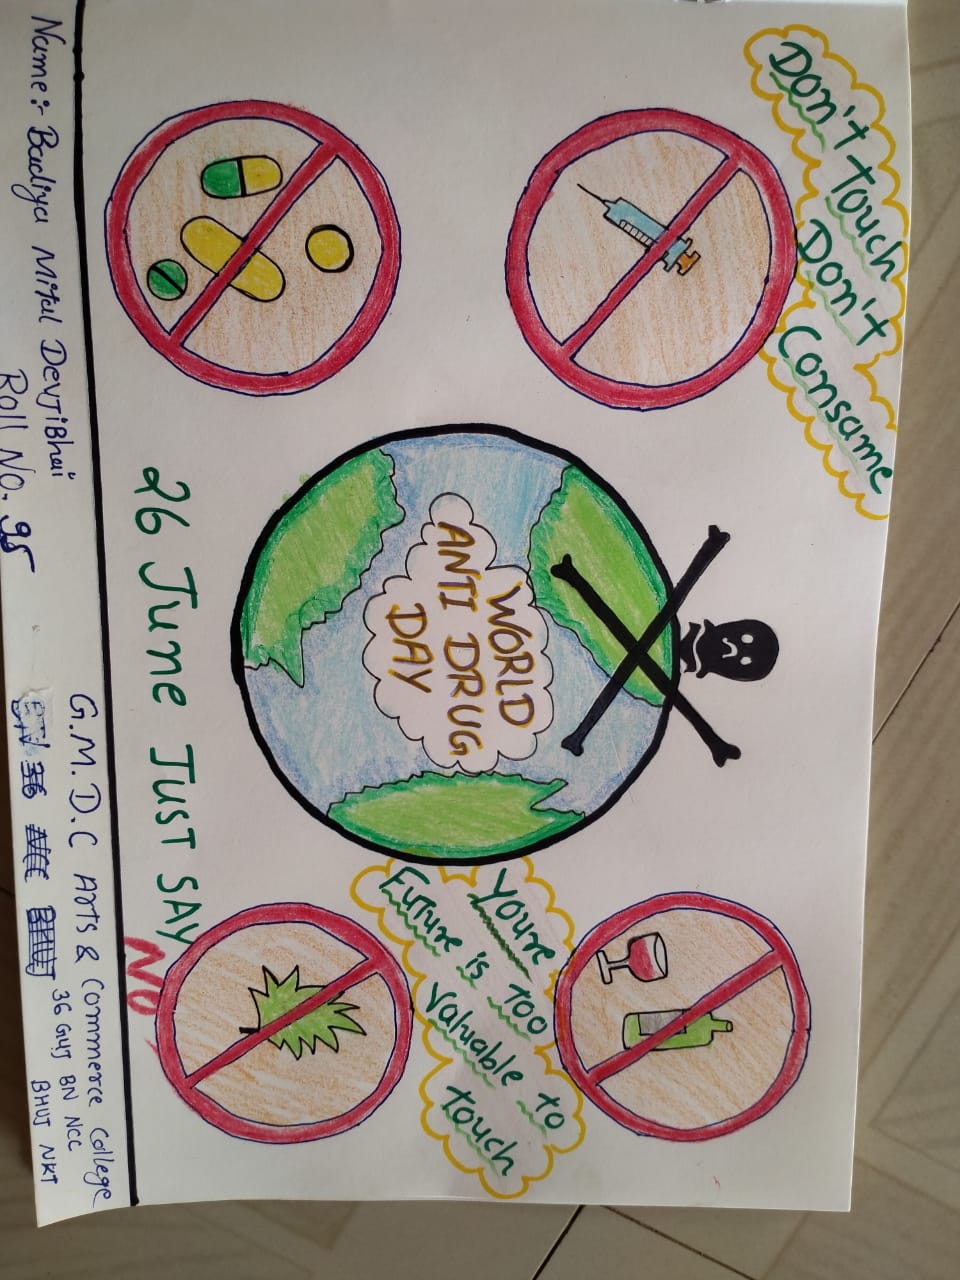 Don't touch
Don't Consame
WORLD
ANTI DRUG
DAY
Youre
Future is too
Valuable to
touch
26 June Just SAY
NO
Name :- Badiya Mital Devjibhai
Roll No. 95
G.M.D.C Arts & Commerce College
36 GUJ BN NCC
BHUJ NKT